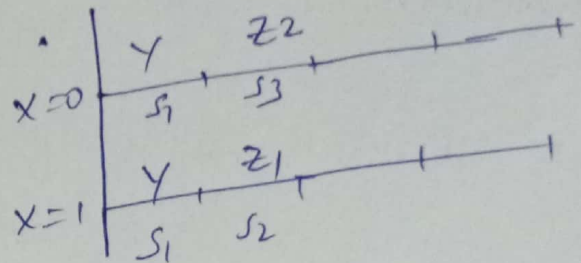 Y Z2
X=0
S1 S3
Y Z1
X=1
S1 S2